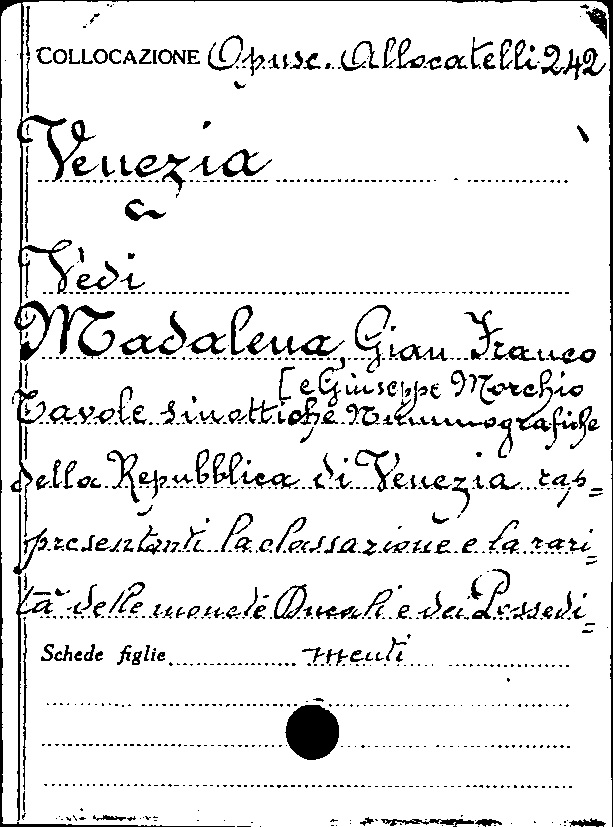 COLLOCAZIONE Opusc. Allocatelli 242
Venezia
Vedi
Madalena, Gian Franco
[e Giuseppe Morchio
Tavole sinottiche Nummografiche
della Repubblica di Venezia rap=
presentanti la classazione e la rari=
tà delle monete Ducali e dei Possedi=
Schede figlie menti